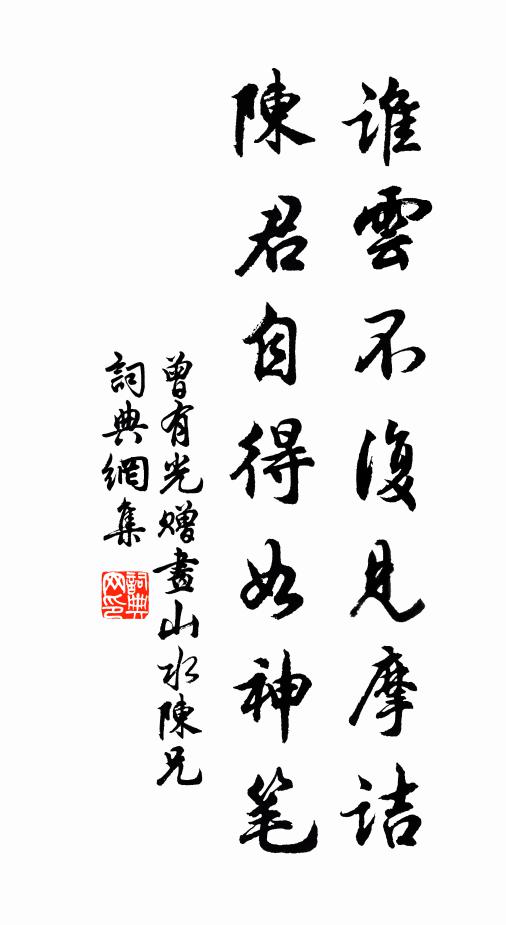 誰雲不復見摩詰
陳君自得如神笔
曾有光贈畫山水陳兄
詞典網集
詞典网印